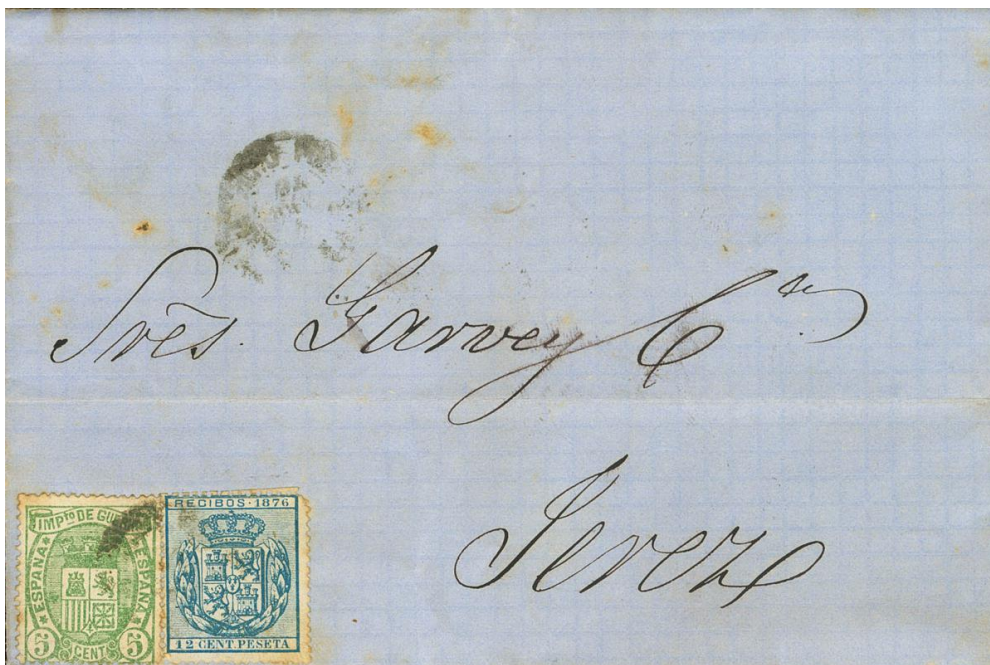 Srēs. Garvey Cª
Jerez
IMPTO DE GU
ESPAÑA
ESPAÑA
5
CENT
5
RECIBOS·1876
12 CENT. PESETA